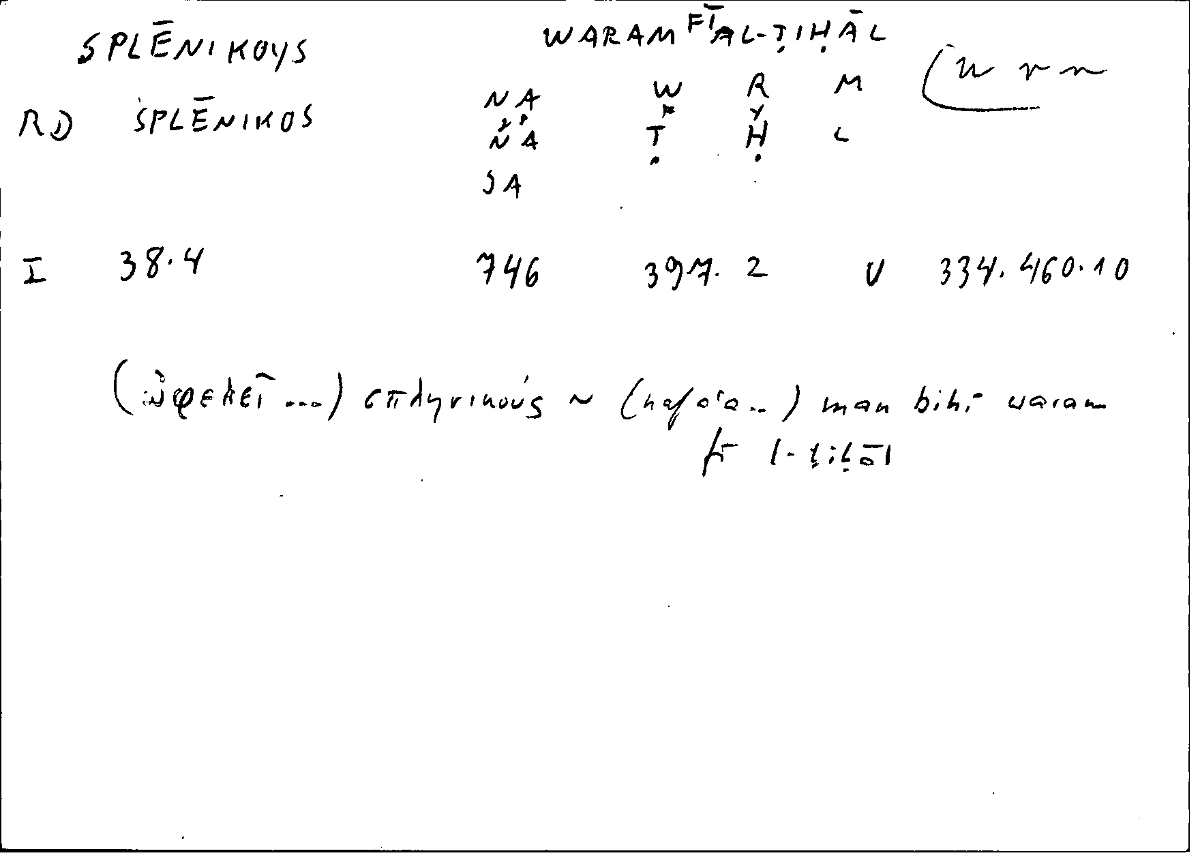 SPLĒNIKOYS WARAM FĪ AL-ṬIḤĀL
NA W R M
RD SPLĒNIKOS
NA Ṭ Ḥ L
SA
I 38.4 746 397. 2 U 334.460.10
(ὠφελεῖ ...) σπληνικούς ~ (nafaʿa ..) man bihī waram
fī l-ṭiḥāl